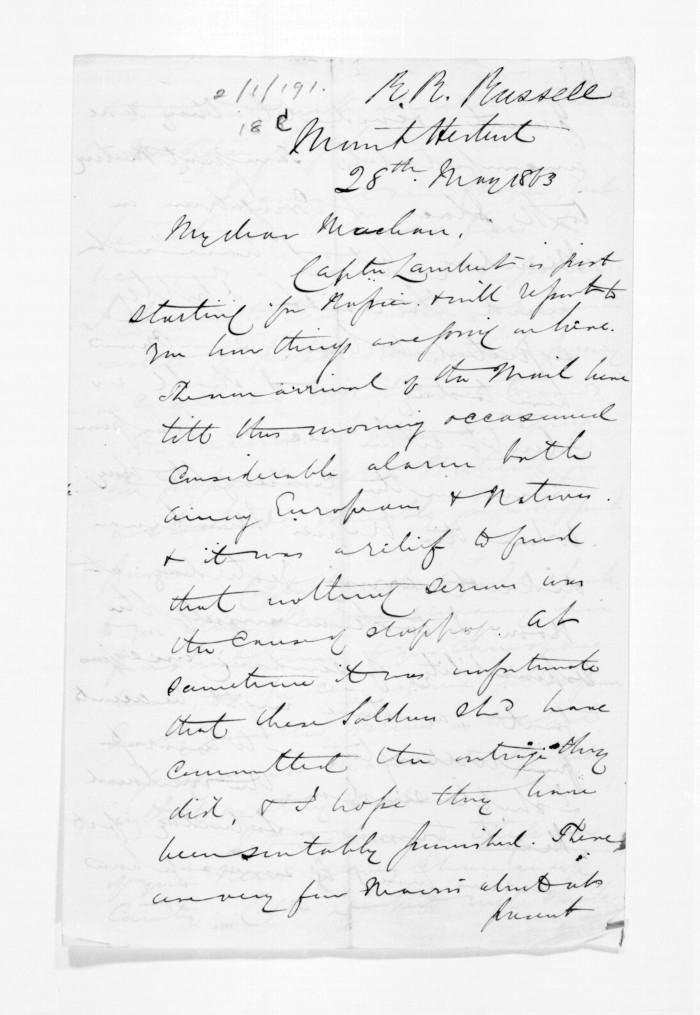 2/1/191.
R. R. Russell
Mount Herbert
28th May 1863
My dear Maclean,
Captn Lambert is just
starting for Napier & will report to
you how things are going on here.
The non arrival of the Mail here
till this morning occasioned
considerable alarm both
among Europeans & Natives.
& it was a relief to find
that nothing serious was
the cause of stoppage. At
same time it was unfortunate
that these Soldiers shd have
committed the outrage they
did, & I hope they have
been suitably punished. There
are very few Maoris about at
present